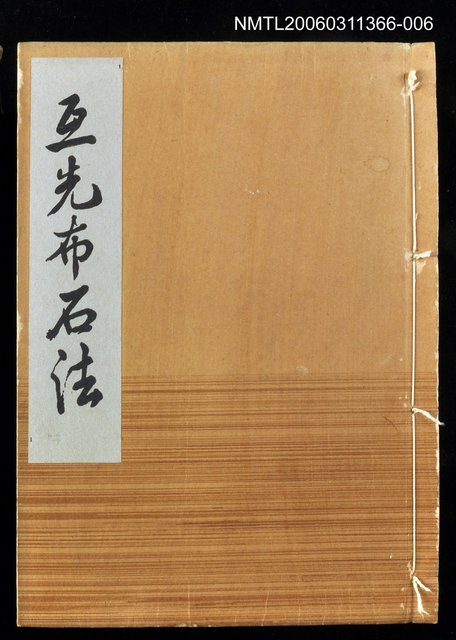 NMTL20060311366-006
互先布石法